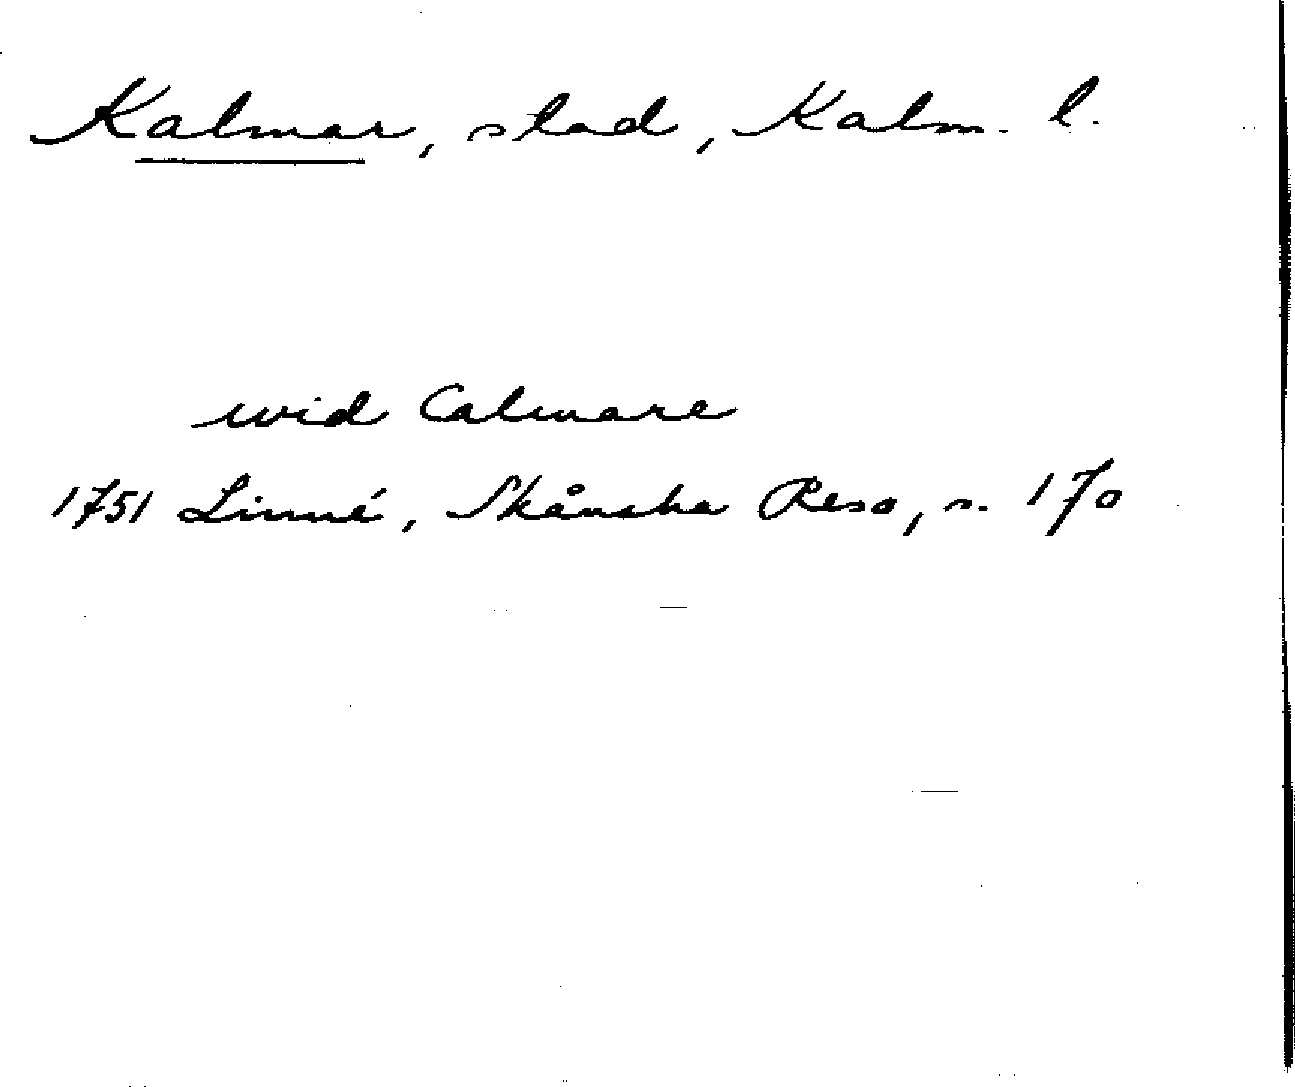 Kalmar, stad, Kalm. l.
wid Calmare
1751 Linné, Skånska Resa, s. 170